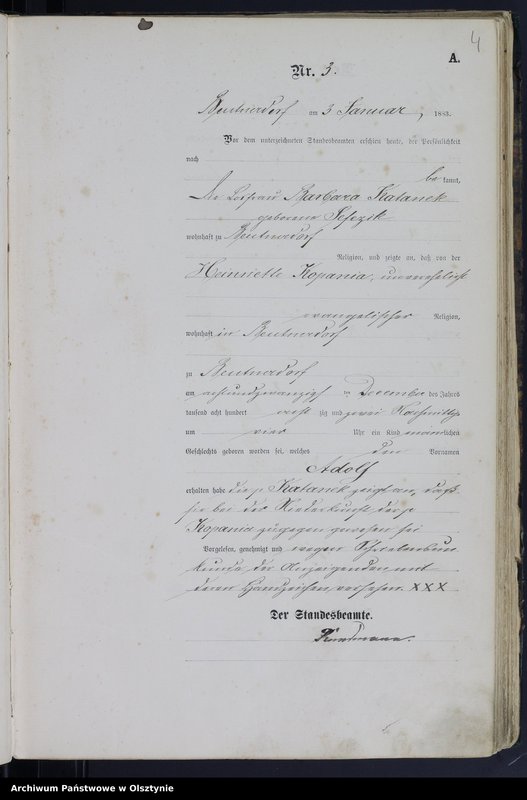 4
A.
Nr. 3.
Beutnerdorf am 3 Januar, 1883.
Vor dem unterzeichneten Standesbeamten erschien heute, der Persönlichkeit
nach
bekannt,
die Losfrau Barbara Katanek
geborene
wohnhaft zu Beutnerdorf
Religion, und zeigte an, daß von der
Heinriette Kopania, unverehelicht
evangelischer Religion,
wohnhaft in Beutnerdorf
zu Beutnerdorf
am achtundzwanzig ten December des Jahres
tausend acht hundert acht zig und zwei Nachmittags
um vier Uhr ein Kind männlichen
Geschlechts geboren worden sei, welches den Vornamen
Adolf
erhalten habe die p Katanek zeigt an, daß
sie bei der Niederkunft der p
Kopania zugegen gewesen sei
Vorgelesen, genehmigt und wegen Schreibensun
kunde der Anzeigenden mit
deren Handzeichen versehen. XXX
Der Standesbeamte.
Archiwum Państwowe w Olsztynie